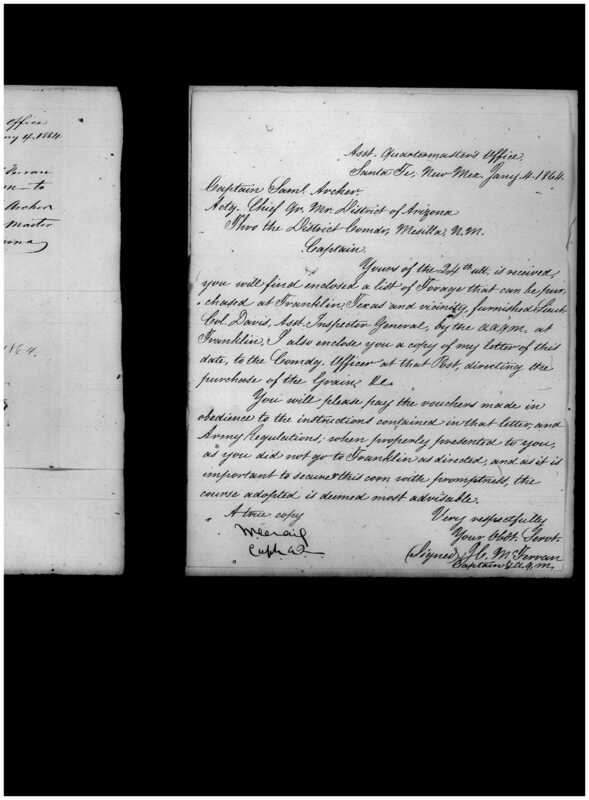 Office
ny 4. 1864.
Ferran
n — to
Archer
Master
zona
1864.
Asst. Quartermaster's Office,
Santa Fe, New Mex. Jany 4. 1864.
Captain Saml. Archer.
Actg. Chief Qr. Mr. District of Arizona
Thro the District Comdr, Mesilla, N.M.
Captain.
Yours of the 24th ult. is received,
you will find enclosed a list of Forage that can be pur
chased at Franklin, Texas and vicinity, furnished Lieut
Col. Davis, Asst. Inspector General, by the a.a.q.m. at
Franklin, I also enclose you a copy of my letter of this
date, to the Comdg. Officer at that Post, directing the
purchase of the Grain, &c.
You will please pay the vouchers made in
obedience to the instructions contained in that letter, and
Army Regulations, when properly presented to you,
as you did not go to Franklin as directed, and as it is
important to secure this corn with promptness, the
course adopted is deemed most advisable.
A true copy
Very respectfully
Your Obdt. Servt.
(Signed) J. C. McFerran
Captain & a.q.m.
Wm Craig
Capt &